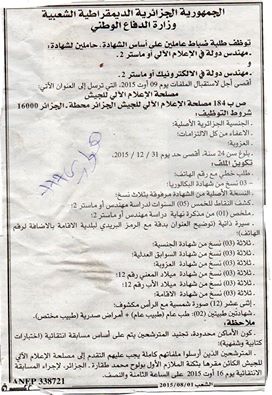 الجمهورية الجزائرية الديمقراطية الشعبية
وزارة الدفاع الوطني
توظف طلبة ضباط عاملين على أساس الشهادة، حاملين لشهادة:
- مهندس دولة في الإعلام الآلي أو ماستر 2.
أو
- مهندس دولة في الالكترونيك أو ماستر 2.
أقصى أجل لاستقبال الملفات يوم 09 أوت 2015، التي ترسل إلى العنوان الآتي:
مصلحة الإعلام الآلي للجيش
ص ب 184 مصلحة الإعلام الآلي للجيش الجزائر محطة، الجزائر 16000
شروط التوظيف:
- الجنسية الجزائرية الأصلية:
- الاعفاء من كل الالتزامات:
- العزوبة:
- بلوغ سن 24 سنة، أقصى حد يوم 31 / 12 / 2015.
تكوين الملف:
- طلب خطي مع رقم الهاتف:
- 03 نسخ من شهادة البكالوريا:
- النسخة الأصلية من الشهادة مرفوقة بثلاث نسخ:
- كشف النقاط للخمس (05) السنوات لدراسة مهندس أو ماستر 2:
- ملخص (01) من مذكرة نهاية دراسة مهندس أو ماستر 2:
- سيرة ذاتية (توضيح العنوان بدقة مع الرمز البريدي لبلدية الاقامة بالاضافة لرقم الهاتف):
- ثلاثة (03) نسخ من شهادة الجنسية:
- ثلاثة (03) نسخ من صحيفة السوابق العدلية:
- ثلاثة (03) نسخ من شهادة العزوبة:
- ثلاثة (03) نسخ من شهادة ميلاد المعني رقم 12:
- ثلاثة (03) نسخ من شهادة ميلاد الأب رقم 12:
- ثلاثة (03) نسخ من شهادة ميلاد الأم رقم 12:
- إثني عشر (12) صورة شمسية مع الرأس مكشوف:
- شهادتين طبيتين (02): طب عام (طبيب عام) + أمراض صدرية (طبيب مختص)
ملاحظة:
- كون الأماكن محدودة، تجنيد المترشحين يتم على أساس مسابقة انتقائية (اختبارات كتابية وشفهية):
- المترشحين الذين أرسلوا ملفاتهم كاملة يجب عليهم التقدم إلى مصلحة الإعلام الآلي للجيش الكائن مقرها بثكنة الملازم الأول بولوح محمد طقارة، الجزائر، لإجراء المسابقة الانتقائية يوم 16 أوت 2015 على الساعة الثامنة والنصف.
ANEP 338721
الشعب 2015/08/01